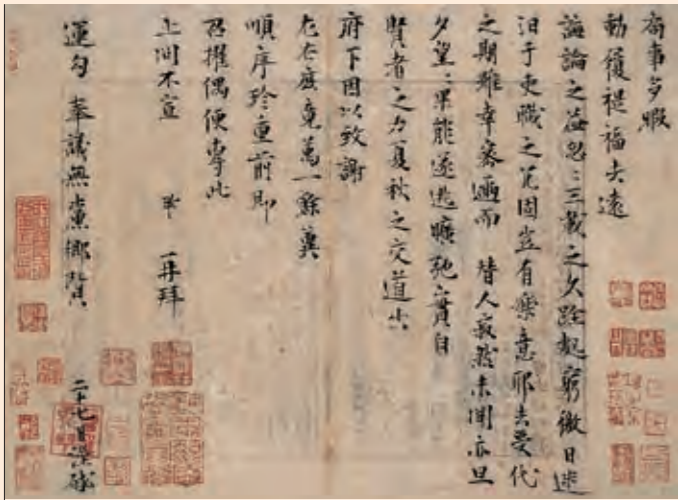 局事多暇
動履禔福去遠
誨論之益忽忽三載之久跧處窮徼日迷
汨于吏職之冗固豈有樂意耶去受代
之期雖幸密邇而 替人寂然未聞亦旦
夕望望果能遂逃曠弛實自
賢者之力夏秋之交道出
府下因以致謝
左右庶竟萬一餘冀
順序珍重前即
召擢偶便專此
上問不宣 鞏 再拜
運勾 奉議無黨鄉賢 二十七日謹啟